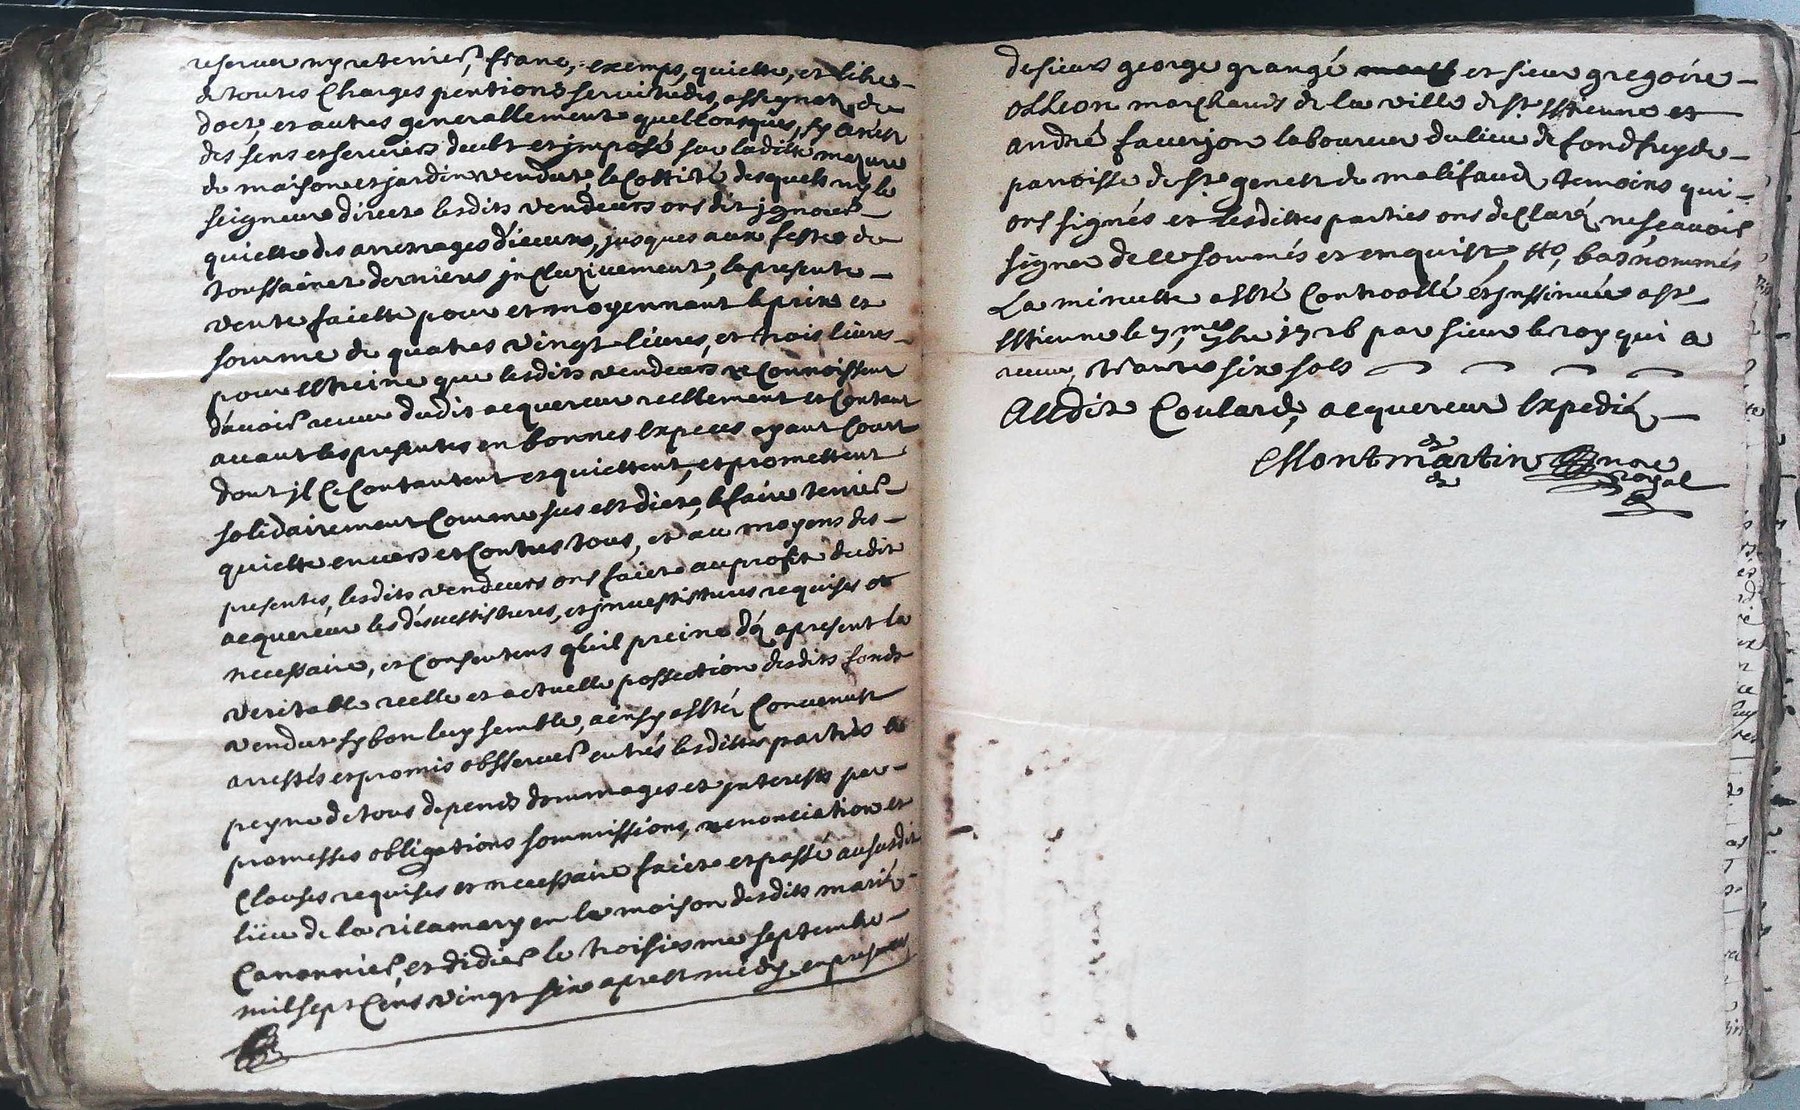 reserver ny retenir, franc, exemps, quiette, et libre
de toutes Charges pentions servitudes, assignat de
doct, et autres generallement quelConques, sy Ce n'est
des sens et services deubt et jmposé sur laditte mazure
de maison et jardin vendue, la Cottité desquels ny le
seigneur direct lesdits vendeurs ons dit jgnorer
quiette des arrerages d'iceux, jusques aux festes de
toussainct dernieres jncluzivement, la presente
vente faicte pour et moyennant le prix et
somme de quatres vingt livres, et trois livres
pour estreine que lesdits vendeurs reConnoissent
d'avoir receu dudit acquereur reellement et Contant
avant les presentes en bonnes especes ayant Court
dont jl Ce Contantent et quiettent, et promettent
solidairement Comme sus est dict, le faire tenir
quiette envers et Contres tous, et au moyens des
presentes, lesdits vendeurs ons faict au profit dudit
acquereur les désvestistures, et jnvestistures requises et
necessaire, et Consentens qu'il preine dez apresent la
veritable reelle et actuelle possestion desdits fonds
vendut sy bon luy semble, ainsy a esté Convenust
arrestés et promis obsserver entrés lesdittes parties a
peyne de tous depends dommages et jnterests par
promesses obligations sommissions, renonciation et
Clauses requises et necessaire faict et passé au susdit
lieu de la ricamary en la maison desdits mariés
Canonnier, et didier le troisiesme septembre
mil sept Cens vingt six aprest midy, en presence
de sieurs george grangé et sieur gregoire
olleon marchands de la ville de st. Estienne et
andré faverjon laboureur du lieu de fondfreyde
parroisse de st. genest de malifaud, temoins qui
ons signés et lesdittes parties ons desClaré ne sçavoir
signer de Ce sommés et enquist, bas nommés
La minutte a esté Controollé et jnssinuée a st.
Estienne le 7bre 1726 par sieur leroy qui a
receu, trante six sols
Audit Coulard, acquereur Expedié
Montmartin nore
Royal